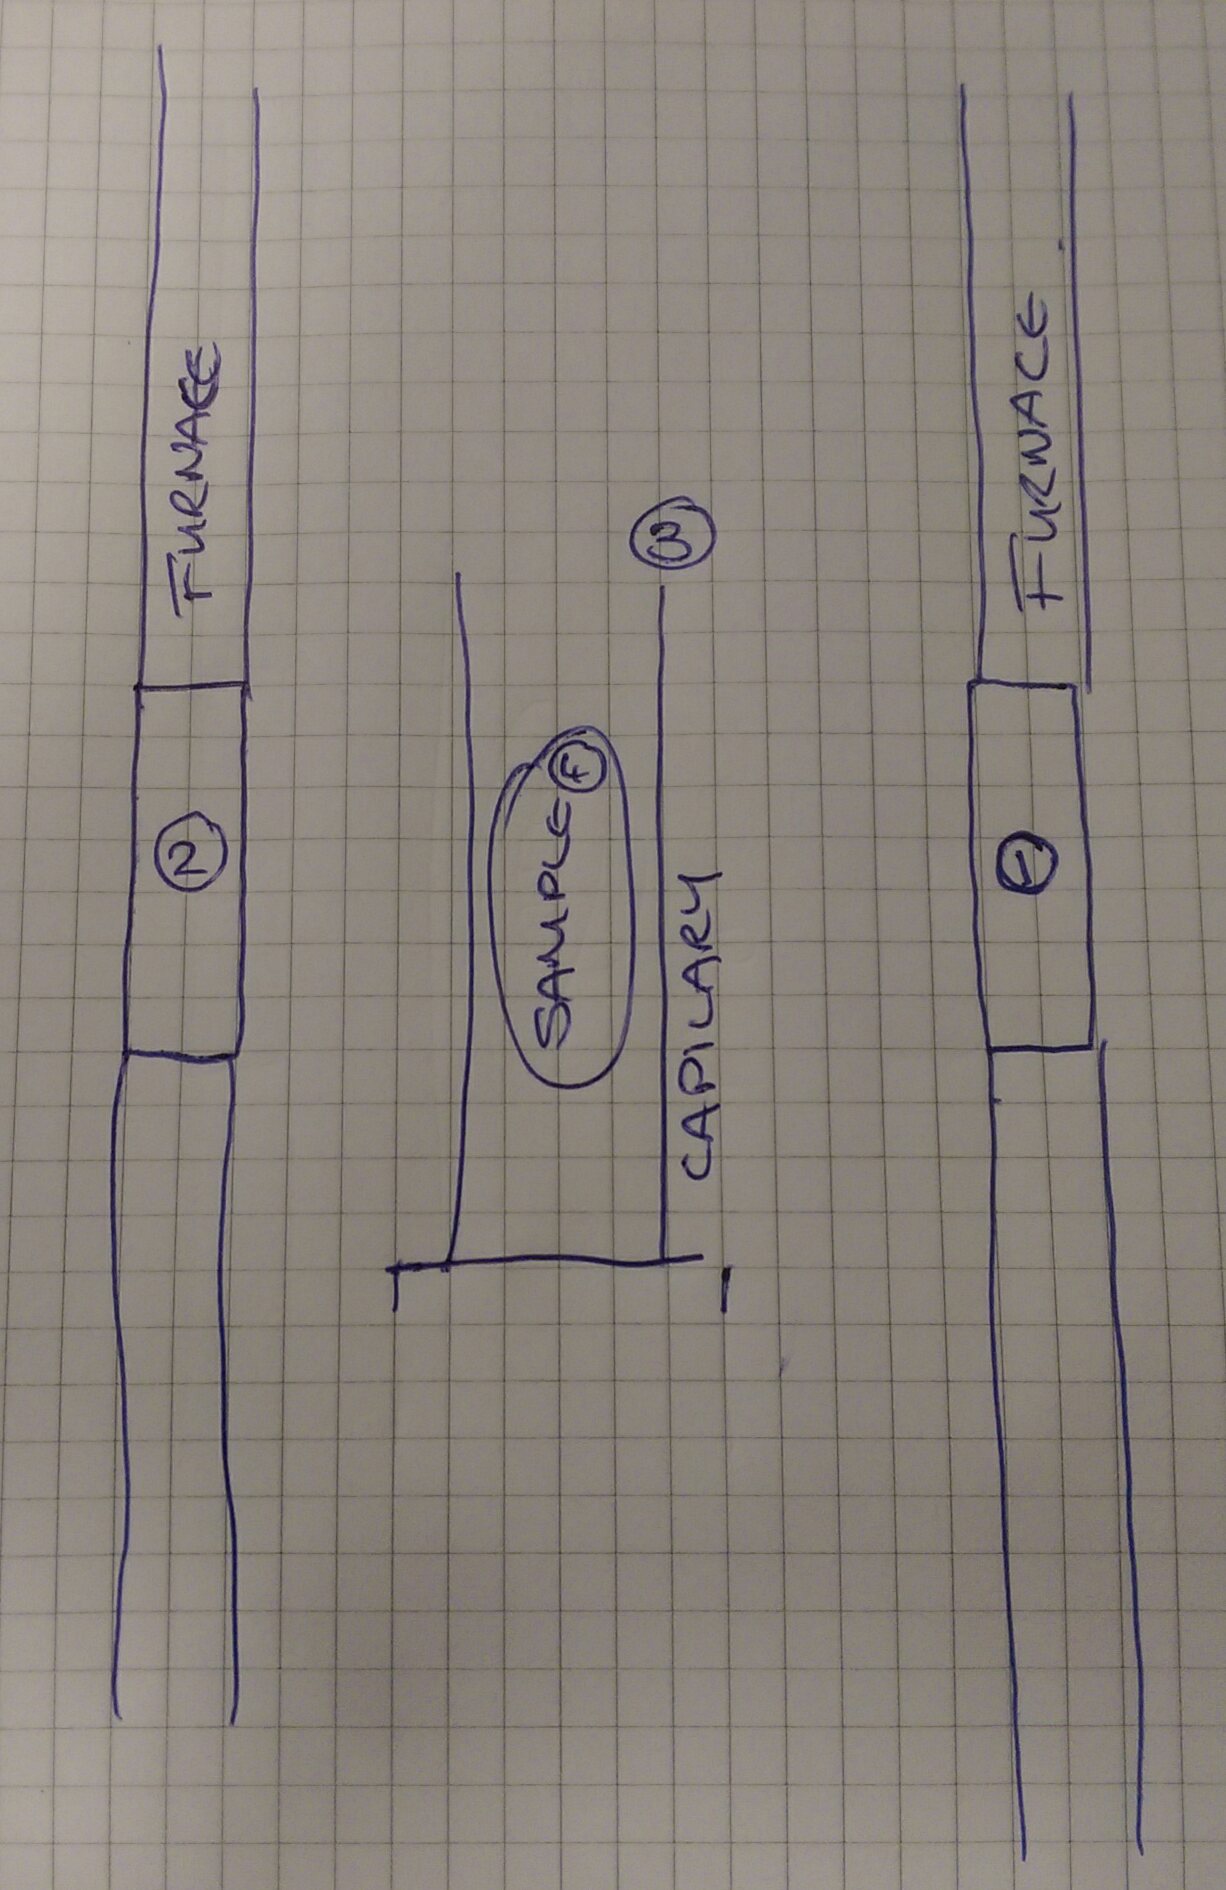 FURNACE
2
SAMPLE 4
3
CAPILARY
FURNACE
1